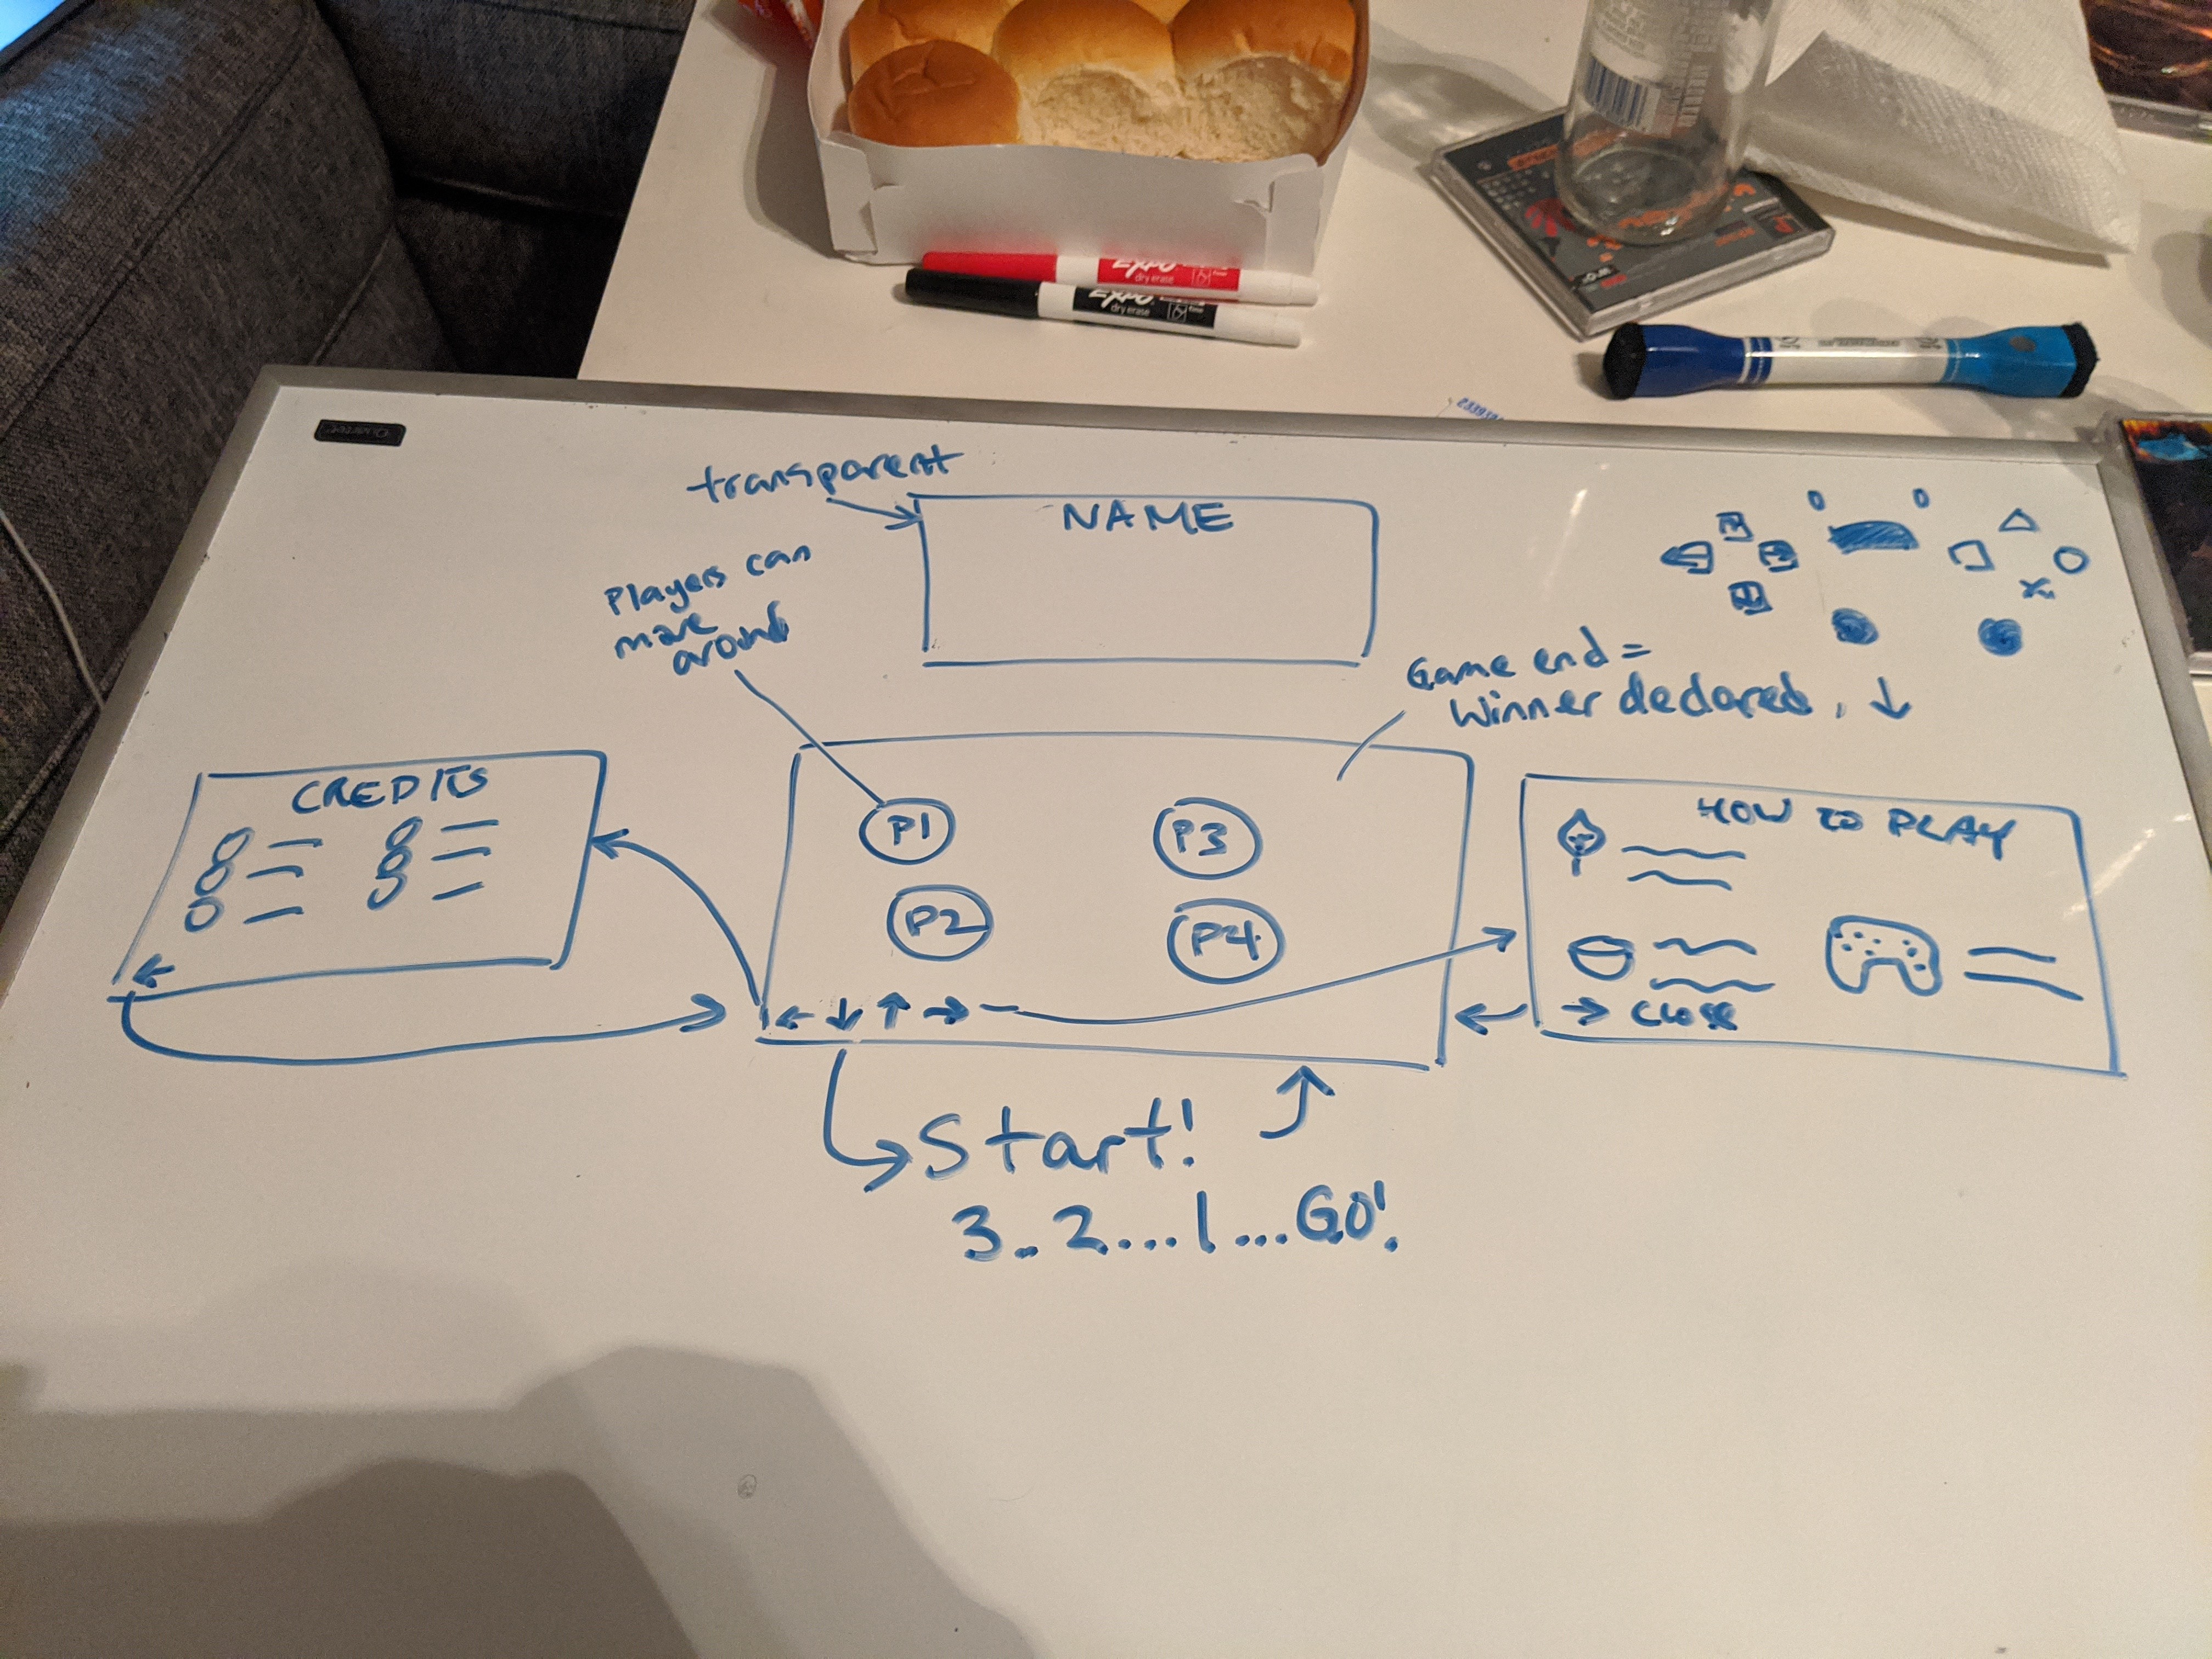 EXPO
dry erase
EXPO
dry erase
transparent
NAME
Players can
move
around
Game end =
Winner declared, ↓
CREDITS
P1
P3
P2
P4
← ↓ ↑ →
←
HOW TO PLAY
→ CLOSE
Start!
3.. 2.... 1 ... GO!